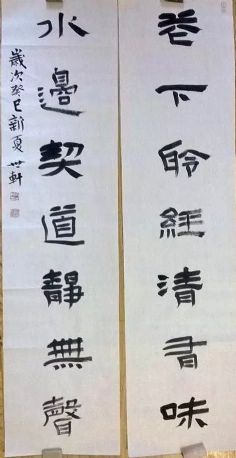 花下聆經清有味
水邊契道靜無聲
歲次癸巳新夏 世軒